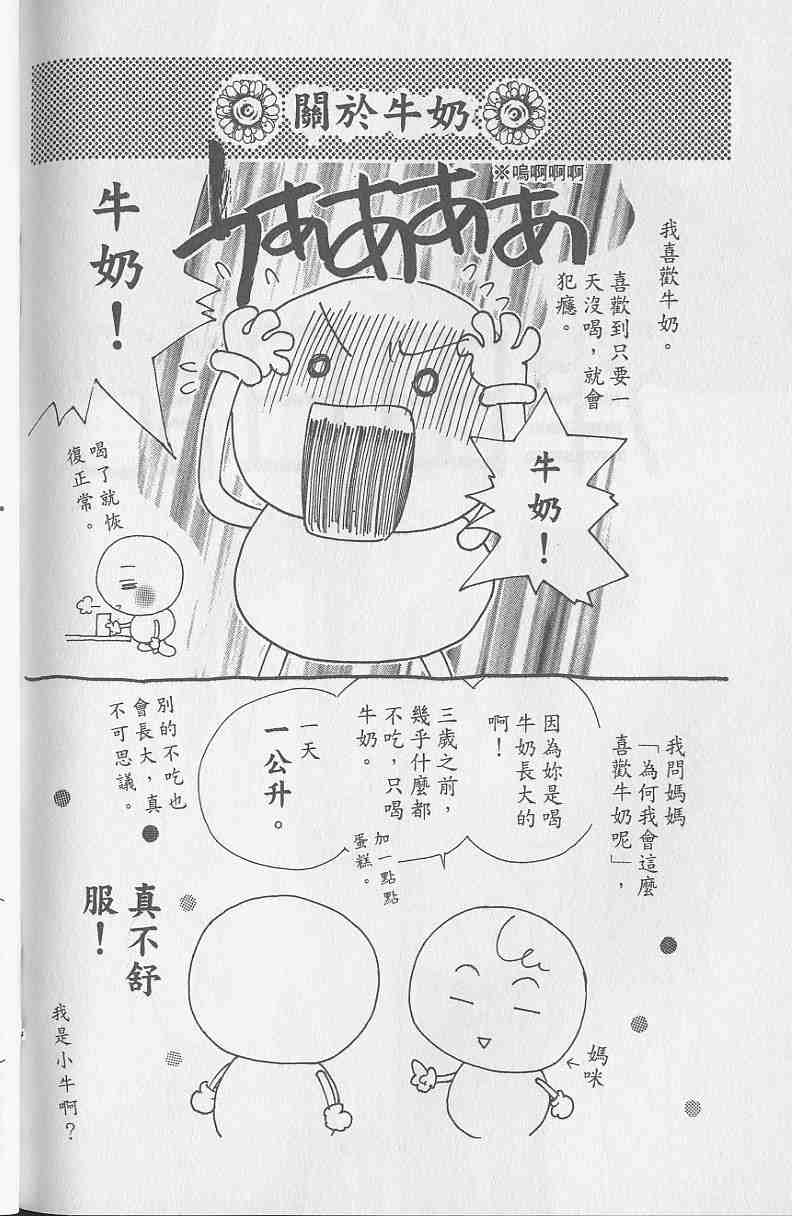 關於牛奶
※嗚啊啊啊
うああああ
我喜歡牛奶。
喜歡到只要一
天沒喝，就會
犯癮。
牛奶！
牛奶！
喝了就恢
復正常。
我問媽媽
「為何我會這麼
喜歡牛奶呢」，
因為妳是喝
牛奶長大的
啊！
三歲之前，
幾乎什麼都
不吃，只喝
牛奶。
加一點點
蛋糕。
一天
一公升。
別的不吃也
會長大，真
不可思議。
媽咪
真不舒
服！
我是小牛啊？